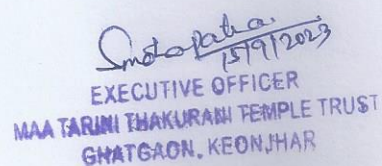 15/9/2023
EXECUTIVE OFFICER
MAA TARINI THAKURANI TEMPLE TRUST
GHATGAON, KEONJHAR